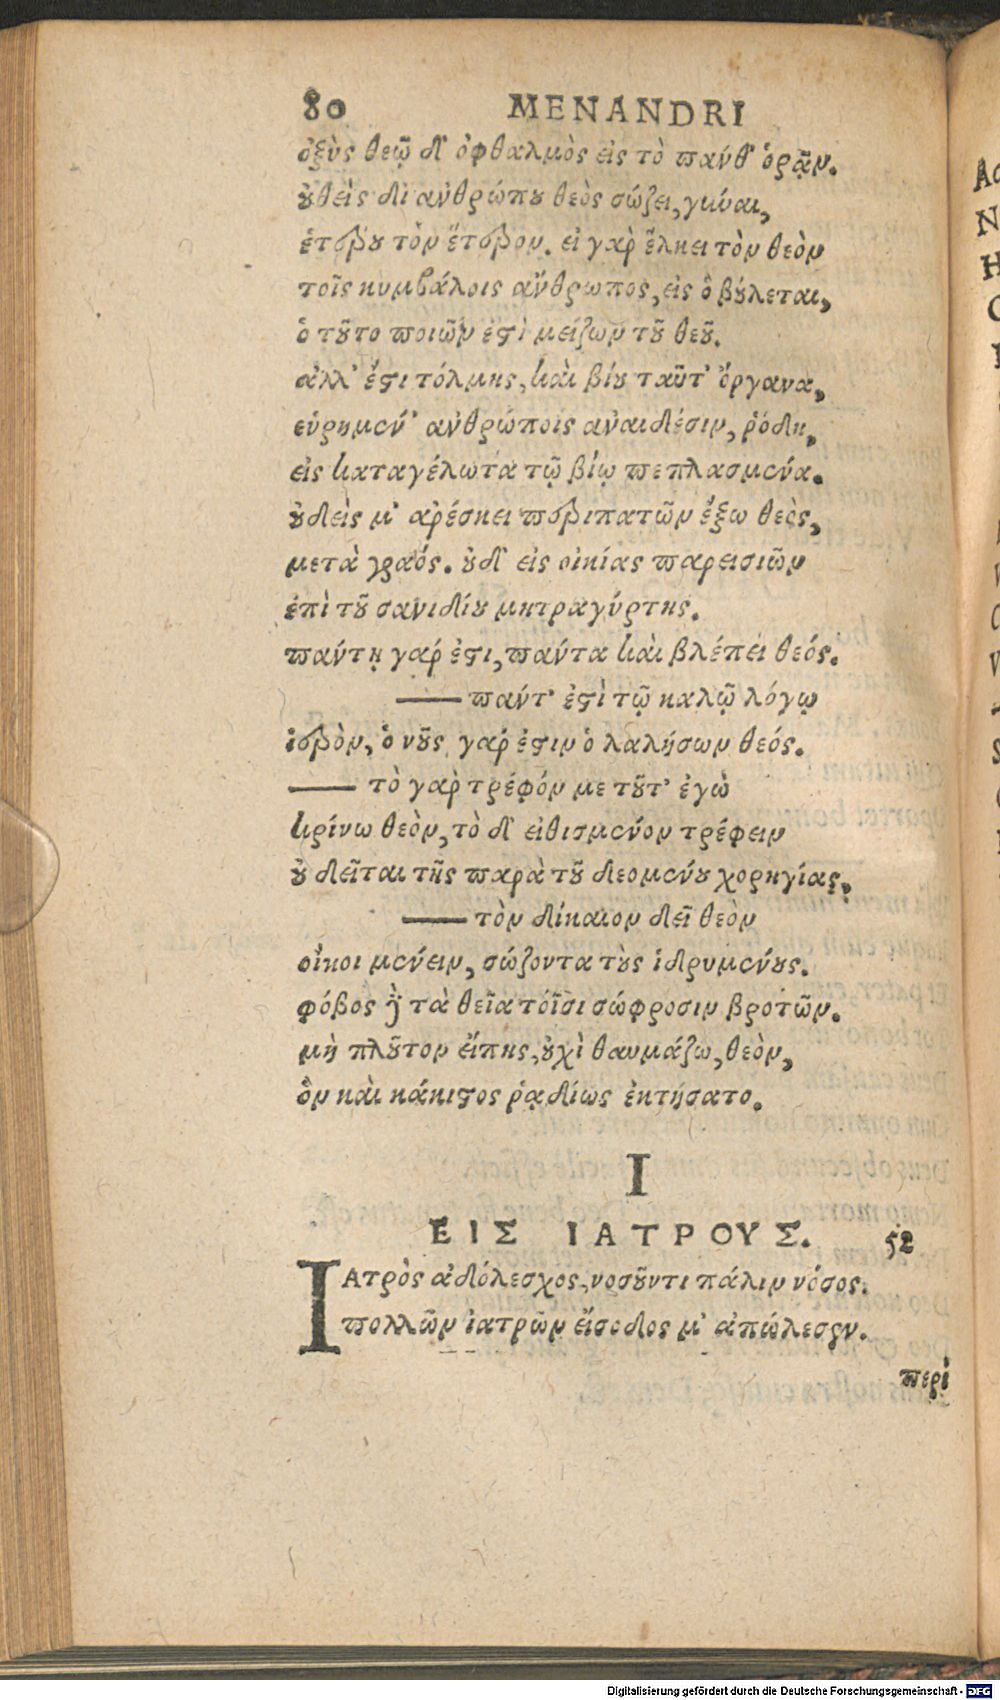 80 MENANDRI
ὀξὺς θεῷ δ' ὀφθαλμὸς εἰς τὸ πάνθ' ὁρᾷν.
οὐθεὶς δι ἀνθρώπου θεὸς σώζει, γύναι,
ἑτέρου τὸν ἕτερον. εἰ γὰρ ἕλκει τὸν θεὸν
τοῖς κυμβάλοις ἄνθρωπος, εἰς ὃ βούλεται,
ὁ τοῦτο ποιῶν ἐστὶ μείζων τοῦ θεοῦ.
ἀλλ' ἔστι τόλμης, καὶ βίου ταῦτ' ὄργανα,
εὑρημέν' ἀνθρώποις ἀναιδέσιν, ῥόδη,
εἰς καταγέλωτα τῷ βίῳ πεπλασμένα.
οὐδείς μ' ἀρέσκει περιπατῶν ἔξω θεὸς,
μετὰ γραός. οὐδ' εἰς οἰκίας παρεισιῶν
ἐπὶ τοῦ σανιδίου μητραγύρτης.
πάντη γάρ ἐστι, πάντα καὶ βλέπει θεός.
—— πάντ' ἐστὶ τῷ καλῷ λόγῳ
ἱερὸν, ὁ νοῦς γάρ ἐστιν ὁ λαλήσων θεός.
—— τὸ γὰρ τρέφόν με τοῦτ' ἐγὼ
κρίνω θεὸν, τὸ δ' εἰθισμένον τρέφειν
οὐ δεῖται τῆς παρὰ τοῦ δεομένου χορηγίας,
—— τὸν δίκαιον δεῖ θεὸν
οἴκοι μένειν, σώζοντα τοὺς ἱδρυμένους.
φόβος ἢ τὰ θεῖα τοῖσι σώφροσιν βροτῶν.
μὴ πλοῦτον εἴπης, οὐχὶ θαυμάζω, θεὸν,
ὃν καὶ κάκιστος ῥᾳδίως ἐκτήσατο.
I
ΕΙΣ ΙΑΤΡΟΥΣ. 52
ΙΑτρὸς ἀδόλεσχος, νοσοῦντι πάλιν νόσος.
πολλῶν ἰατρῶν εἴσοδος μ' ἀπώλεσεν.
περὶ
Digitalisierung gefördert durch die Deutsche Forschungsgemeinschaft - DFG